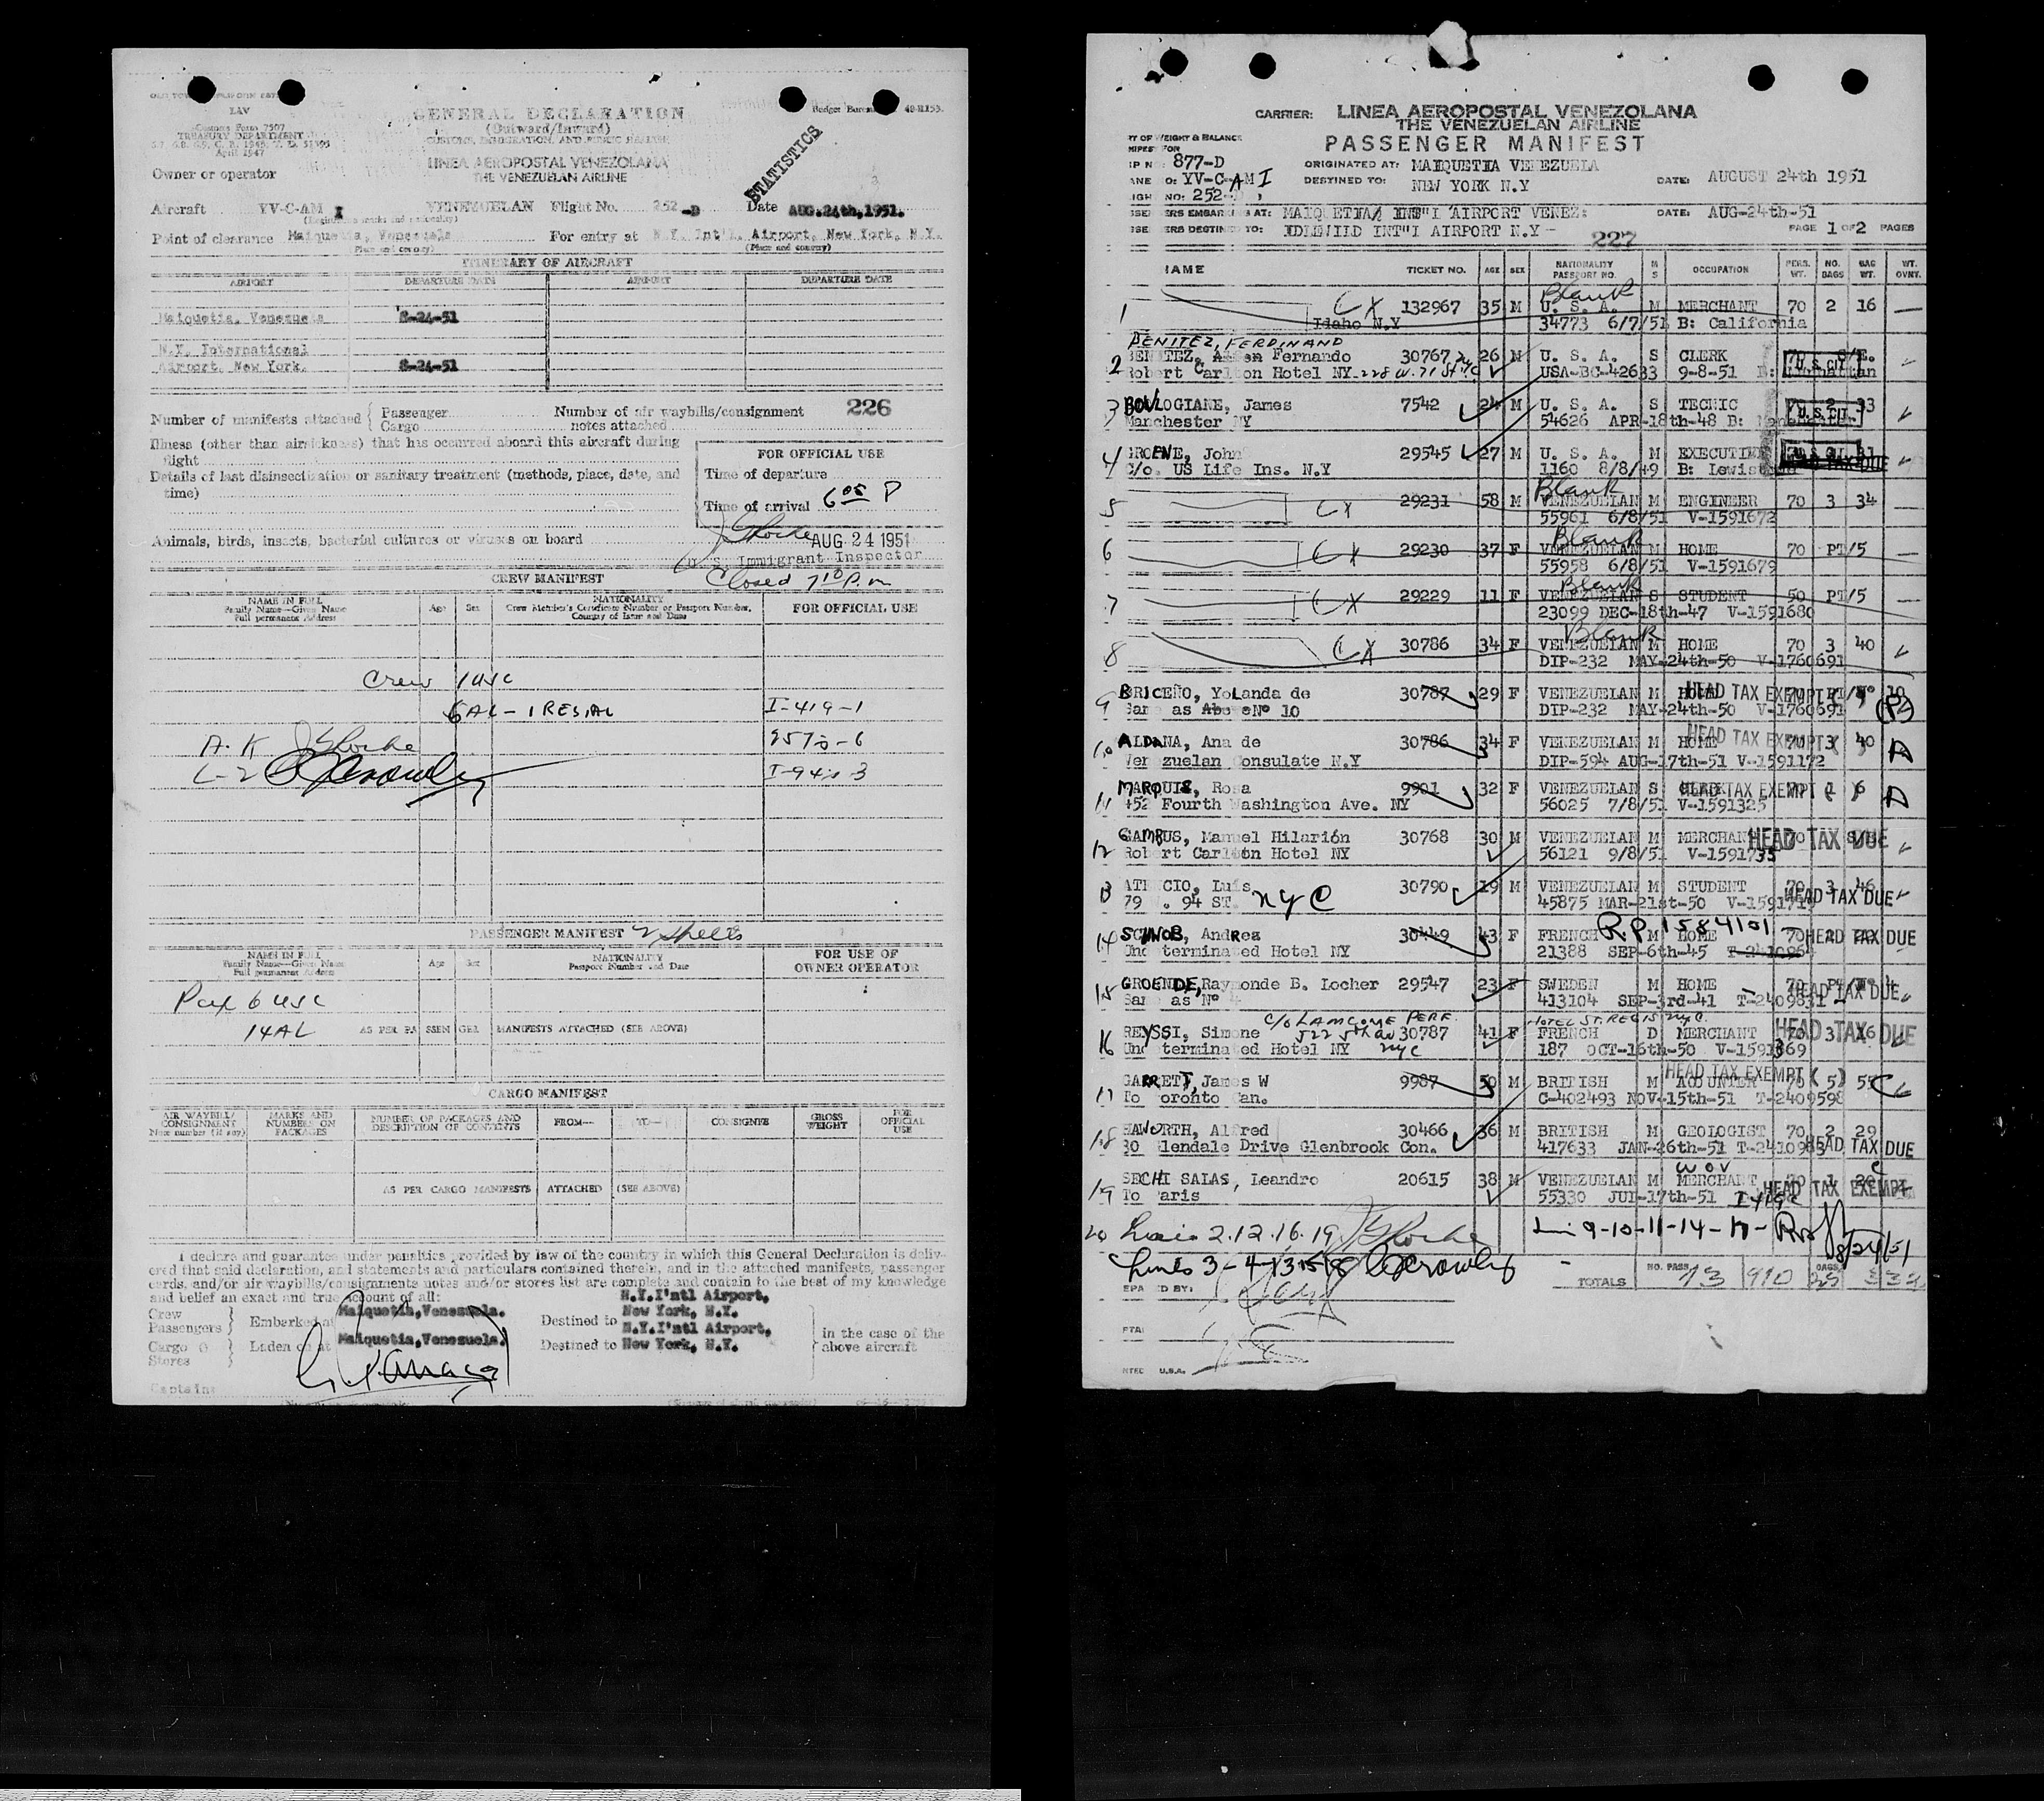 LAV
Customs Form 7507
TREASURY DEPARTMENT
April 1947
GENERAL DECLARATION
(Outward/Inward)
CUSTOMS, IMMIGRATION, AND PUBLIC HEALTH
Budget Bureau 48-R153.
STATISTICS
LINEA AEROPOSTAL VENEZOLANA
THE VENEZUELAN AIRLINE
Owner or operator
Aircraft YV-C-AM I VENEZUELAN Flight No. 252-D Date AUG.24th,1951.
(Registration marks and nationality)
Point of clearance Maiquetia, Venezuela For entry at N.Y. Int'l. Airport, New York, N.Y.
(Place and country) (Place and country)
ITINERARY OF AIRCRAFT
AIRPORT DEPARTURE DATE AIRPORT DEPARTURE DATE
Maiquetia, Venezuela 8-24-51
N.Y. International
Airport, New York. 8-24-51
Number of manifests attached { Passenger Number of air waybills/consignment 226
Cargo notes attached
Illness (other than airsickness) that has occurred aboard this aircraft during
flight
Details of last disinsectization or sanitary treatment (methods, place, date, and
time)
FOR OFFICIAL USE
Time of departure
Time of arrival 6 05 P
Animals, birds, insects, bacterial cultures or viruses on board
AUG 24 1951
U. S. Immigrant Inspector
Closed 7 10 P.m
CREW MANIFEST
NAME IN FULL
Family Name—Given Name
Full permanent Address
Age Sex
NATIONALITY
Crew Member's Certificate Number or Passport Number,
Country of Issue and Date
FOR OFFICIAL USE
Crew 1 USC
6 AL - 1 RES. AL I-419-1
A.K 957-6
L-2 I-94-3
PASSENGER MANIFEST 2 Sheets
NAME IN FULL
Family Name—Given Name
Full permanent Address
Age Sex
NATIONALITY
Passport Number and Date
FOR USE OF
OWNER OPERATOR
Pax 6 USC
14 AL
AS PER PASSENGER MANIFESTS ATTACHED (SEE ABOVE)
CARGO MANIFEST
AIR WAYBILL/
CONSIGNMENT
Note number (if any)
MARKS AND
NUMBERS ON
PACKAGES
NUMBER OF PACKAGES AND
DESCRIPTION OF CONTENTS
FROM— TO— CONSIGNEE
GROSS
WEIGHT
FOR
OFFICIAL
USE
AS PER CARGO MANIFESTS ATTACHED (SEE ABOVE)
I declare and guarantee under penalties provided by law of the country in which this General Declaration is deliv-
ered that said declaration, and statements and particulars contained therein, and in the attached manifests, passenger
cards, and/or air waybills/consignments notes and/or stores list are complete and contain to the best of my knowledge
and belief an exact and true account of all:
Crew
Passengers } Embarked at Maiquetia,Venezuela. Destined to N.Y.I'ntl Airport, New York, N.Y.
Cargo
Stores } Laden on at Maiquetia,Venezuela. Destined to N.Y.I'ntl Airport, New York, N.Y.
in the case of the
above aircraft
Captain:
CARRIER: LINEA AEROPOSTAL VENEZOLANA
THE VENEZUELAN AIRLINE
PASSENGER MANIFEST
877-D
YV-C-AM I
252-
ORIGINATED AT: MAIQUETIA VENEZUELA
DESTINED TO: NEW YORK N.Y
DATE: AUGUST 24th 1951
EMBARKED AT: MAIQUETIA INT"l AIRPORT VENEZ: DATE: AUG-24th-51
DESTINED TO: IDLEWILD INT"l AIRPORT N.Y- PAGE 1 OF 2 PAGES
227
NAME TICKET NO. AGE SEX NATIONALITY PASSPORT NO. M S OCCUPATION PERS. WT. NO. BAGS BAG WT. WT. OVWT.
Blank
1 CX 132967 35 M U. S. A. M MERCHANT 70 2 16
Idaho N.Y 34773 6/7/51 B: California
BENITEZ, FERDINAND
2 BENITEZ, Fernando 30767 26 M U. S. A. S CLERK
Robert Carlton Hotel NY 228 W. 71 St USA-BC-42633 9-8-51
U S CIT
3 BOULOGIANE, James 7542 24 M U. S. A. S TECNIC 33
Manchester NY 54626 APR-18th-48 B:
U.S. CIT.
4 GROENE, John 29545 27 M U. S. A. M EXECUTIVE 31
C/o. US Life Ins. N.Y 1160 8/8/49 B:
HEAD TAX DUE
Blank
5 CX 29231 58 M VENEZUELAN M ENGINEER 70 3 34
55961 6/8/51 V-1591672
Blank
6 CX 29230 37 F VENEZUELAN M HOME 70 PT/5
55958 6/8/51 V-1591679
Blank
7 CX 29229 11 F VENEZUELAN S STUDENT 50 PT/5
23099 DEC-18th-47 V-1591680
Blank
8 CX 30786 34 F VENEZUELAN M HOME 70 3 40
DIP-232 MAY-24th-50 V-1760691
9 BRICEÑO, Yolanda de 30787 29 F VENEZUELAN M HOME HEAD TAX EXEMPT
Same as Above Nº 10 DIP-232 MAY-24th-50 V-1760691
10 ALDANA, Ana de 30786 34 F VENEZUELAN M HOME 70 3 40 HEAD TAX EXEMPT
Venezuelan Consulate N.Y DIP-594 AUG-17th-51 V-1591172
11 MARQUIS, Rosa 9901 32 F VENEZUELAN S 1 6 HEAD TAX EXEMPT
452 Fourth Washington Ave. NY 56025 7/8/51 V-1591325
12 CAMPUS, Manuel Hilarión 30768 30 M VENEZUELAN M MERCHANT HEAD TAX DUE
Robert Carlton Hotel NY 56121 9/8/51 V-1591735
13 ATENCIO, Luis 30790 19 M VENEZUELAN M STUDENT 70 3 46
79 . 94 ST. NYC 45875 MAR-21st-50 HEAD TAX DUE
14 SCHWOB, Andrea 30449 43 F FRENCH M HOME R.P 1584101 HEAD TAX DUE
Undeterminated Hotel NY 21388 SEP-6th-45
15 GROENDE, Raymonde B. Locher 29547 23 F SWEDEN M HOME
Same as Nº 4 413104 SEP-3rd-41 T-2409831 HEAD TAX DUE
c/o LAMCOME PERF. HOTEL ST. REGIS NYC
16 REYSSI, Simone 522 5th av 30787 41 F FRENCH D MERCHANT 70 3 HEAD TAX DUE
Undeterminated Hotel NY NYC 187 OCT-16th-50 V-1591369
HEAD TAX EXEMPT
17 GARRETT, James W 9987 50 M BRITISH M
To Toronto Can. C-402493 NOV-15th-51 T-2409598
18 HAWORTH, Alfred 30466 36 M BRITISH M GEOLOGIST 70 2 29
30 Glendale Drive Glenbrook Con. 417633 JAN-26th-51 HEAD TAX DUE
WOV
19 SECHI SALAS, Leandro 20615 38 M VENEZUELAN M MERCHANT HEAD TAX EXEMPT
To Paris 55330 JUL-17th-51
20 Lines 2.12.16.19 Lin 9-10-11-14-17- 8/24/51
Lines 3-4-13-15-18
PREPARED BY:
TOTALS NO. PASS. 13 910 BAGS
U.S.A.